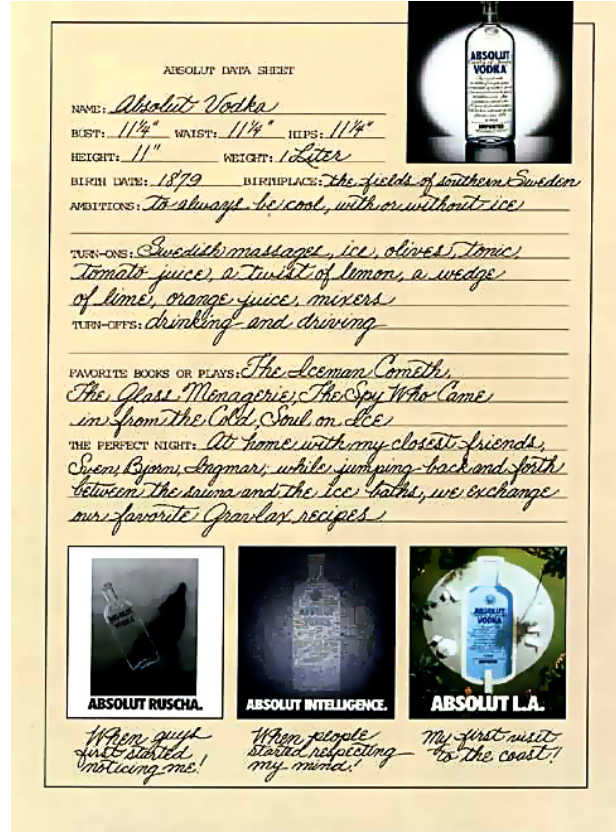 ABSOLUT
VODKA
IMPORTED
ABSOLUT DATA SHEET
NAME: Absolut Vodka
BUST: 11 1/4" WAIST: 11 1/4" HIPS: 11 1/4"
HEIGHT: 11" WEIGHT: 1 Liter
BIRTH DATE: 1879 BIRTHPLACE: the fields of southern Sweden
AMBITIONS: To always be cool, with or without ice
TURN-ONS: Swedish massages, ice, olives, tonic,
tomato juice, a twist of lemon, a wedge
of lime, orange juice, mixers
TURN-OFFS: drinking and driving
FAVORITE BOOKS OR PLAYS: The Iceman Cometh,
The Glass Menagerie, The Spy Who Came
in from the Cold, Soul on Ice
THE PERFECT NIGHT: At home with my closest friends,
Sven, Bjorn, Ingmar, while jumping back and forth
between the sauna and the ice baths, we exchange
our favorite Gravlax recipes
ABSOLUT
VODKA
ABSOLUT RUSCHA.
When guys
first started
noticing me!
ABSOLUT INTELLIGENCE.
When people
started respecting
my mind!
ABSOLUT
VODKA
IMPORTED
ABSOLUT L.A.
My first visit
to the coast!